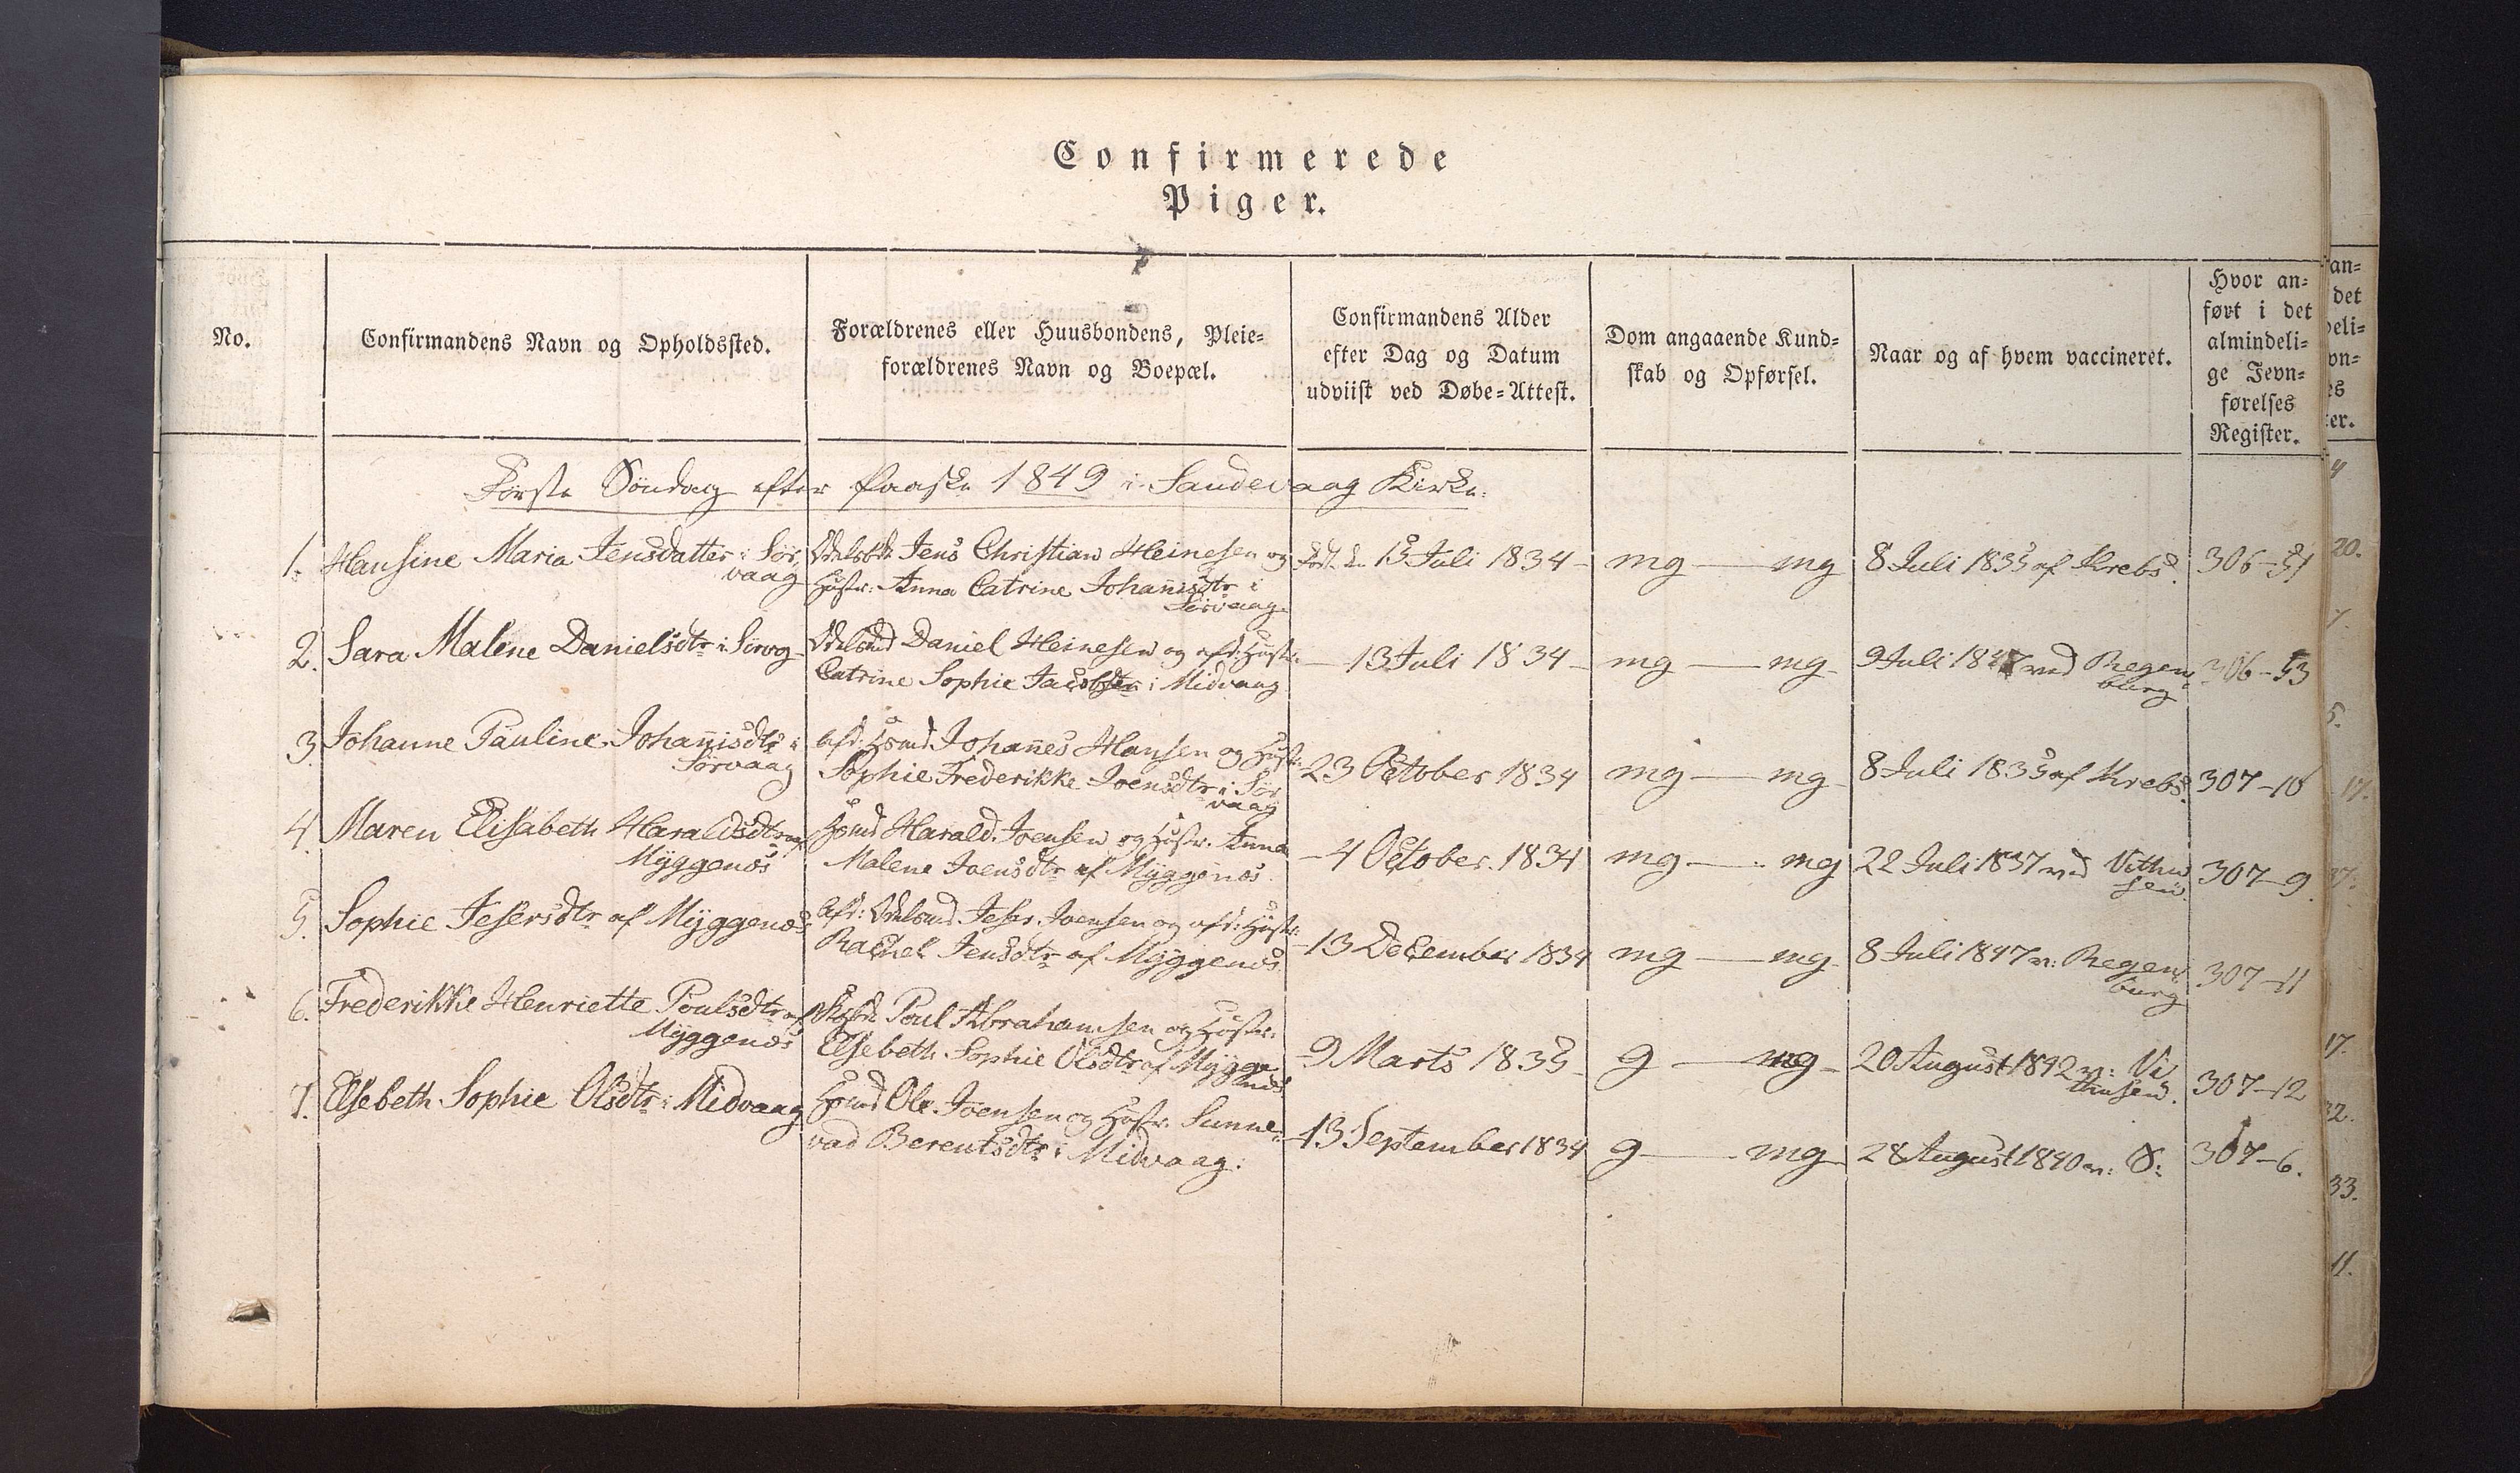 Confirmerede
Piger.
No.
Confirmandens Navn og Opholdssted.
Forældrenes eller Huusbondens, Pleie=
forældrenes Navn og Boepæl.
Confirmandens Alder
efter Dag og Datum
udviist ved Døbe=Attest.
Dom angaaende Kund=
skab og Opførsel.
Naar og af hvem vaccineret.
Hvor an=
ført i det
almindeli=
ge Jevn=
førelses
Register.
Første Søndag efter Paaske 1849 i Sandevaag Kirke.
1. Hansine Maria Jensdatter i Sør
vaag
Jens Christian Heinesen og
Hustr: Anna Catrine Johannisdtr i
Sørvaag
13 Juli 1834 mg mg 8 Juli 1835 af Krebs. 306-51
2. Sara Malene Danielsdtr i Sørvog
Daniel Heinesen og afd: Hustr:
Catrine Sophie Jacobsdtr i Midvaag
13 Juli 1834 mg mg 9 Juli 1847 ved Regen
burg
306-53
3. Johanne Pauline Johannisdtr i
Sørvaag
afd: Johannes Hansen og Hustr:
Sophie Frederikke Joensdtr i Sør
vaag
23 October 1834 mg mg 8 Juli 1835 af Krebs. 307-10
4. Maren Elisabeth Haraldsdtr af
Myggenøs
Harald Joensen og Hustr. Anna
Malene Joensdtr af Myggenøs
4 October 1834 mg mg 22 Juli 1837 ved
307-9.
5. Sophie Jesersdtr af Myggenøs
Afd: Joensen og afd: Hustr:
Rachel Jensdtr af Myggenøs
13 December 1834 mg mg 8 Juli 1847 v: Regen
burg
307-11
6. Frederikke Henriette Poulsdtr af
Myggenøs
Poul Abrahamsen og Hustr:
Elsebeth Sophie Olsdtr af Mygge
nøs
9 Marts 1835 g mg 20 August 1842 v: Vi
thusen.
307-12
7. Elsebeth Sophie Olsdtr i Midvaag
Ole Joensen og Hustr. Sunne=
vad Berentsdtr i Midvaag.
13 September 1834 g mg 28 August 1840 v: 307-6.